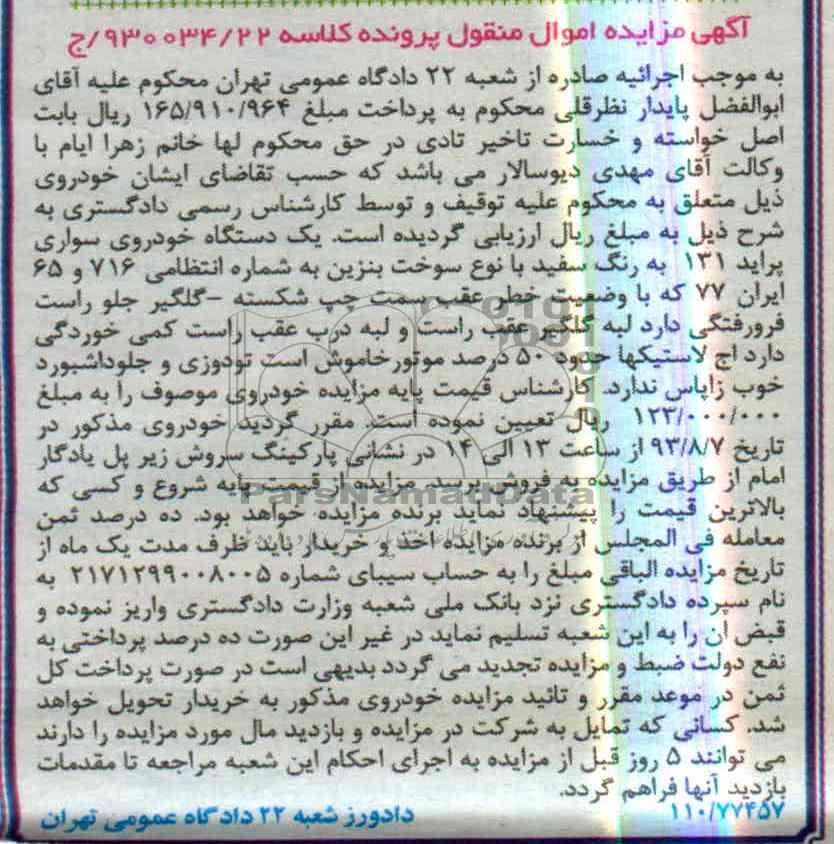 آگهی مزایده اموال منقول پرونده کلاسه ۹۳۰۰۳۴/۲۲/ج
به موجب اجرائیه صادره از شعبه ۲۲ دادگاه عمومی تهران محکوم علیه آقای
ابوالفضل پایدار نظرقلی محکوم به پرداخت مبلغ ۱۶۵/۹۱۰/۹۶۴ ریال بابت
اصل خواسته و خسارت تاخیر تادی در حق محکوم لها خانم زهرا ایام با
وکالت آقای مهدی دیوسالار می باشد که حسب تقاضای ایشان خودروی
ذیل متعلق به محکوم علیه توقیف و توسط کارشناس رسمی دادگستری به
شرح ذیل به مبلغ ریال ارزیابی گردیده است. یک دستگاه خودروی سواری
پراید ۱۳۱ به رنگ سفید با نوع سوخت بنزین به شماره انتظامی ۷۱۶ و ۶۵
ایران ۷۷ که با وضعیت خطر عقب سمت چپ شکسته -گلگیر جلو راست
فرورفتگی دارد لبه گلگیر عقب راست و لبه درب عقب راست کمی خوردگی
دارد اج لاستیکها حدود ۵۰ درصد موتور خاموش است تودوزی و جلوداشبورد
خوب زاپاس ندارد. کارشناس قیمت پایه مزایده خودروی موصوف را به مبلغ
۱۲۳/۰۰۰/۰۰۰ ریال تعیین نموده است. مقرر گردید خودروی مذکور در
تاریخ ۹۳/۸/۷ از ساعت ۱۳ الی ۱۴ در نشانی پارکینگ سروش زیر پل یادگار
امام از طریق مزایده به فروش برسد. مزایده از قیمت پایه شروع و کسی که
ParsNamadData
بالاترین قیمت را پیشنهاد نماید برنده مزایده خواهد بود. ده درصد ثمن
معامله فی المجلس از برنده مزایده اخذ و خریدار باید ظرف مدت یک ماه از
تاریخ مزایده الباقی مبلغ را به حساب سیبای شماره ۲۱۷۱۲۹۹۰۰۸۰۰۵ به
نام سپرده دادگستری نزد بانک ملی شعبه وزارت دادگستری واریز نموده و
قبض ان را به این شعبه تسلیم نماید در غیر این صورت ده درصد پرداختی به
نفع دولت ضبط و مزایده تجدید می گردد بدیهی است در صورت پرداخت کل
ثمن در موعد مقرر و تائید مزایده خودروی مذکور به خریدار تحویل خواهد
شد. کسانی که تمایل به شرکت در مزایده و بازدید مال مورد مزایده را دارند
می توانند ۵ روز قبل از مزایده به اجرای احکام این شعبه مراجعه تا مقدمات
بازدید آنها فراهم گردد.
۱۱۰/۷۷۴۵۷ دادورز شعبه ۲۲ دادگاه عمومی تهران